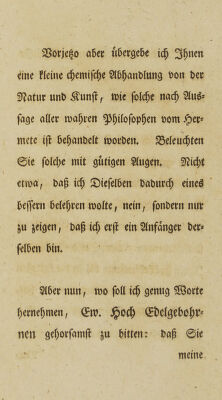 Vorjetzo aber übergebe ich Ihnen
eine kleine chemische Abhandlung von der
Natur und Kunst, wie solche nach Aus-
sage aller wahren Philosophen vom Her-
mete ist behandelt worden. Beleuchten
Sie solche mit gütigen Augen. Nicht
etwa, daß ich Dieselben dadurch eines
bessern belehren wolte, nein, sondern nur
zu zeigen, daß ich erst ein Anfänger der-
selben bin.
Aber nun, wo soll ich genug Worte
hernehmen, Ew. Hoch Edelgebohr-
nen gehorsamst zu bitten: daß Sie
meine